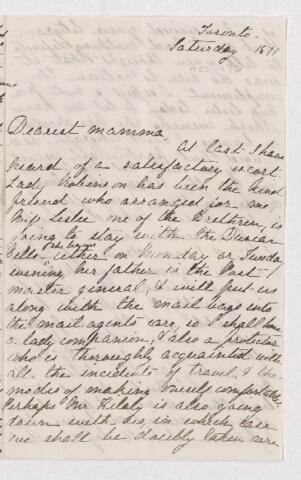 Toronto
Saturday 1871
Dearest Mamma,
At last I have
heard of a satisfactory escort
Lady Robinson has been the kind
friend who arranged for me,
Miss Leslie one of the Brethren, is
going to stay with the Duncan
Bells either on Monday or Tuesday
evening, her father is the Post
master general & will put us
along with the mail bags into
the mail agents care, so I shall have
a lady companion, & also a protector
who is thoroughly acquainted with
all the incidents of travel, & the
modes of making oneself comfortable
Perhaps Mr Kilaly is also going
down with us, in which case
we shall be doubly taken care